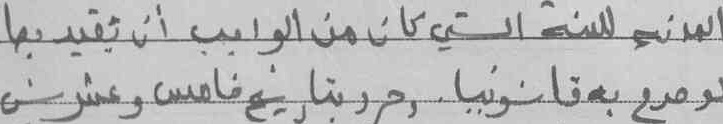 المدنية للسنة التي كان من الواجب أن تقيد بها
لو صرح به قانونيا. وحرر بتاريخ خامس وعشرين